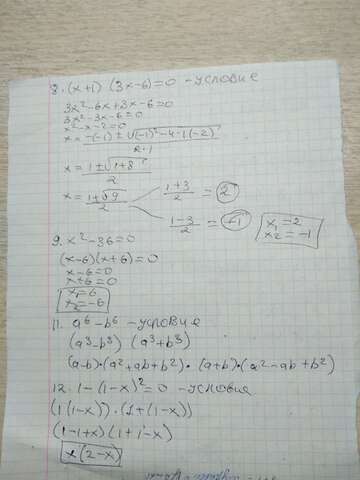 8. (x+1) (3x-6)=0 - условие
3x²-6x+3x-6=0
3x²-3x-6=0
x²-x-2=0
x = -(-1) ± √(-1)²-4·1·(-2)
2·1
x = 1±√1+8 / 2
x = 1±√9 / 2
1+3 / 2 = 2
1-3 / 2 = -1
x₁=2
x₂=-1
9. x²-36=0
(x-6)(x+6)=0
x-6=0
x+6=0
x₁=6
x₂=-6
11. a⁶-b⁶ - условие
(a³-b³) (a³+b³)
(a-b)·(a²+ab+b²)·(a+b)·(a²-ab+b²)
12. 1-(1-x)²=0 - условия
(1(1-x))·(1+(1-x))
(1-1+x)(1+1-x)
x(2-x)